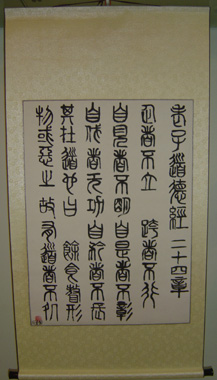 老子道德經 二十四章
企者不立 跨者不行
自見者不明自是者不彰
自伐者无功自矜者不長
其在道也曰 餘食贅形
物或惡之 故有道者不処